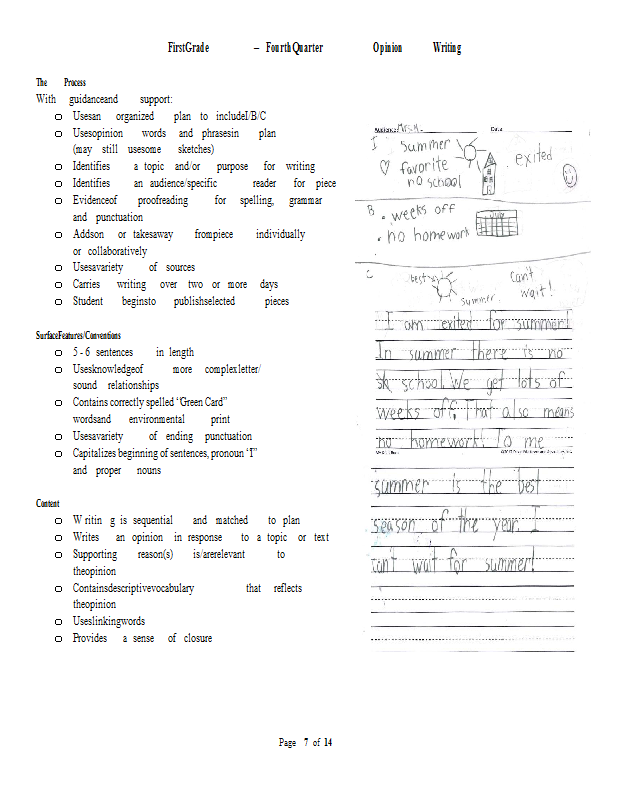 First Grade – Fourth Quarter Opinion Writing
The Process
With guidance and support:
Uses an organized plan to include I/B/C
Uses opinion words and phrases in plan
(may still use some sketches)
Identifies a topic and/or purpose for writing
Identifies an audience/specific reader for piece
Evidence of proofreading for spelling, grammar
and punctuation
Adds on or takes away from piece individually
or collaboratively
Uses a variety of sources
Carries writing over two or more days
Student begins to publish selected pieces
Surface Features/Conventions
5 - 6 sentences in length
Uses knowledge of more complex letter/
sound relationships
Contains correctly spelled “Green Card”
words and environmental print
Uses a variety of ending punctuation
Capitalizes beginning of sentences, pronoun “I”
and proper nouns
Content
Writing is sequential and matched to plan
Writes an opinion in response to a topic or text
Supporting reason(s) is/are relevant to
the opinion
Contains descriptive vocabulary that reflects
the opinion
Uses linking words
Provides a sense of closure
Audience: Mrs. M. Date
I summer
favorite
no school
exited
B • weeks off
• no homework
July
C
best
summer
Can't
wait!
I am exited for summer!
In summer there is no
school. We get lots of
weeks off. That also means
no homework! To me
summer is the best
season of the year. I
can't wait for summer!
Page 7 of 14